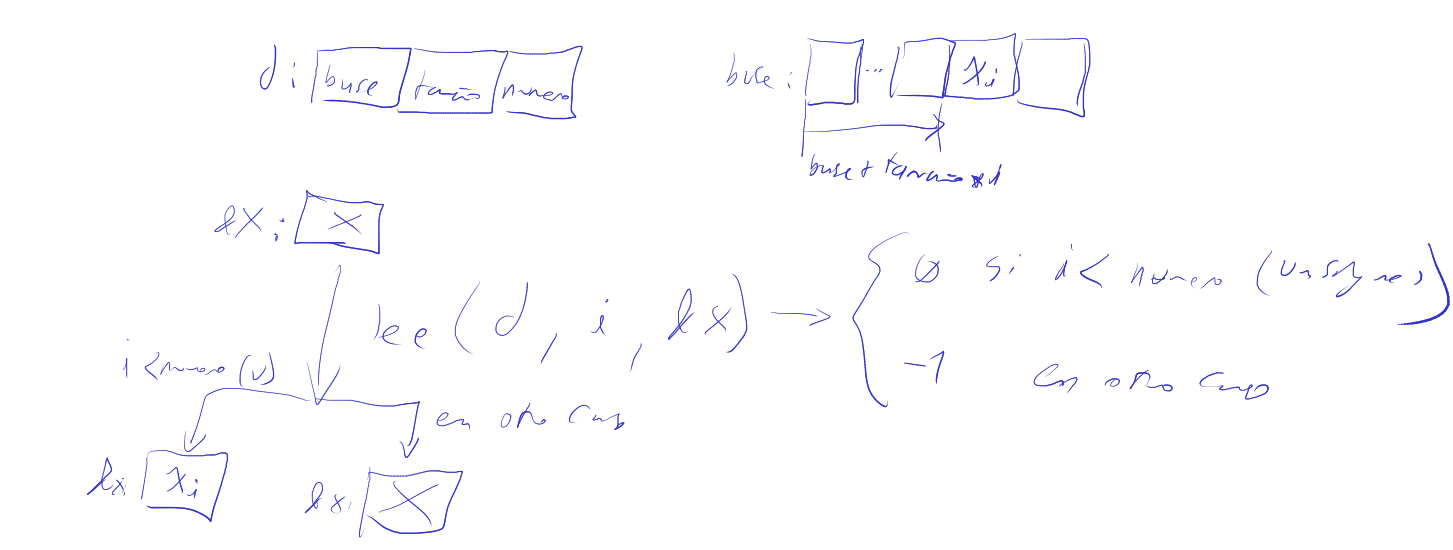 d : base tamaño numero
base : ... Xi
base + tamaño * i
&X : X
lee ( d , i , &X ) → { 0 si i < numero (unsigned)
-1 en otro caso
i < numero (U)
en otro caso
&X: Xi
&X: X